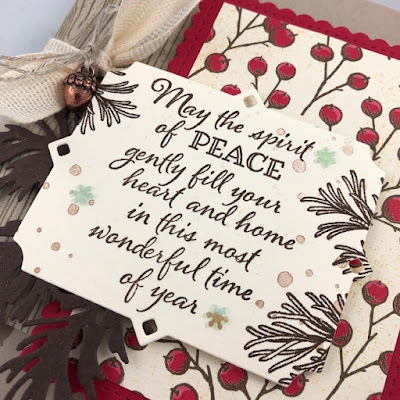 May the spirit
of PEACE
gently fill your
heart and home
in this most
wonderful time
of year